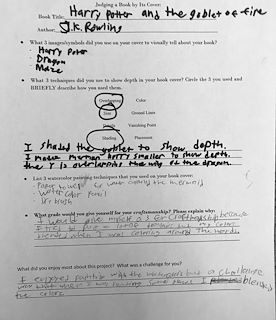 Judging a Book by Its Cover:
Book Title: Harry Potter and the goblet of fire
Author: J.K. Rowling
What 3 images/symbols did you use on your cover to visually tell about your book?
- Harry Potter
- Dragon
- Maze
What 3 techniques did you use to show depth in your cover? Circle the 3 you used and
BRIEFLY describe how you used them.
Overlapping Color
Size Ground Lines
Vanishing Point
Shading Placement
I shaded the goblet to show depth.
I make merman harry smaller to show depth.
the overlaps the of the dragon.
List 3 watercolor painting techniques that you used on your book cover:
- Paper towel for water around the mermaid
- Water color pencil
- brush
What grade would you give yourself for your craftsmanship? Please explain why:
I would give myself a 3 for craftsmanship because
I tried to but the colors
blended when I was coloring around the
What did you enjoy most about this project? What was a challenge for you?
I enjoyed painting with the watercolors but a challenge
was that when I was painting some places I blended
the colors.